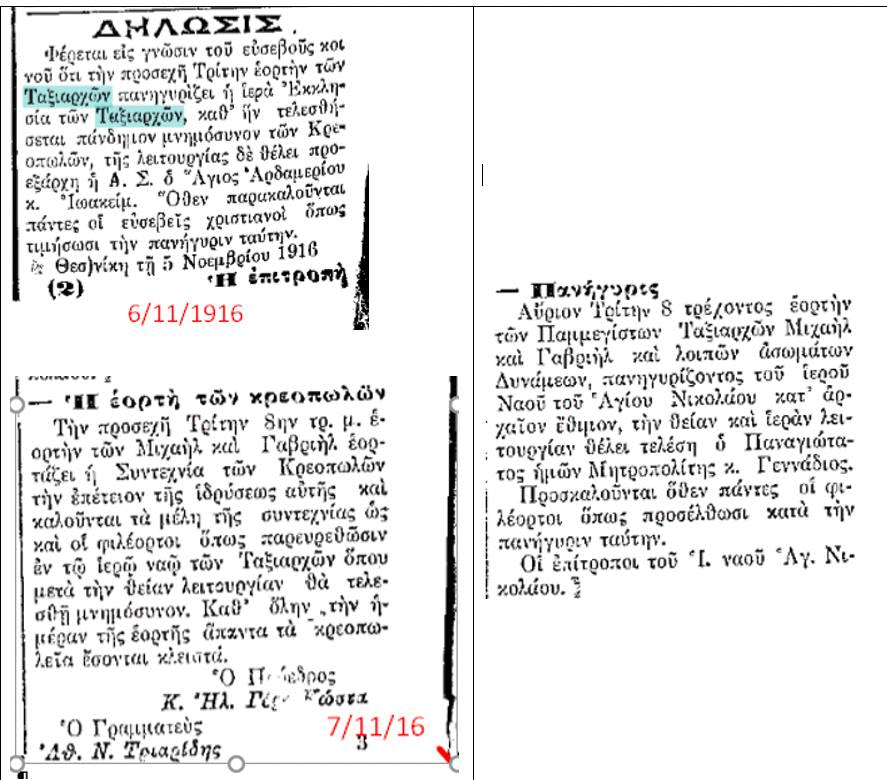 ΔΗΛΩΣΙΣ.
Φέρεται εἰς γνῶσιν τοῦ εὐσεβοῦς κοι
νοῦ ὅτι τὴν προσεχῆ Τρίτην ἑορτὴν τῶν
Ταξιαρχῶν πανηγυρίζει ἡ ἱερὰ Ἐκκλη-
σία τῶν Ταξιαρχῶν, καθ' ἣν τελεσθή-
σεται πάνδημον μνημόσυνον τῶν Κρε-
οπωλῶν, τῆς λειτουργίας δὲ θέλει προ-
εξάρχη ἡ Α. Σ. ὁ Ἅγιος Ἀρδαμερίου
κ. Ἰωακείμ. Ὅθεν παρακαλοῦνται
πάντες οἱ εὐσεβεῖς χριστιανοὶ ὅπως
τιμήσωσι τὴν πανήγυριν ταύτην.
Θεσ)νίκη τῇ 5 Νοεμβρίου 1916
(2) Ἡ ἐπιτροπὴ
6/11/1916
— Ἡ ἑορτὴ τῶν κρεοπωλῶν
Τὴν προσεχῆ Τρίτην 8ην τρ. μ. ἑ-
ορτὴν τῶν Μιχαὴλ καὶ Γαβριὴλ ἑορ-
τάζει ἡ Συντεχνία τῶν Κρεοπωλῶν
τὴν ἐπέτειον τῆς ἱδρύσεως αὐτῆς καὶ
καλοῦνται τὰ μέλη τῆς συντεχνίας ὡς
καὶ οἱ φιλέορτοι ὅπως παρευρεθῶσιν
ἐν τῷ ἱερῷ ναῷ τῶν Ταξιαρχῶν ὅπου
μετὰ τὴν θείαν λειτουργίαν θὰ τελε-
σθῇ μνημόσυνον. Καθ' ὅλην τὴν ἡ-
μέραν τῆς ἑορτῆς ἅπαντα τὰ κρεοπω-
λεῖα ἔσονται κλειστά.
Ὁ Πρόεδρος
Κ. Ἠλ.
Ὁ Γραμματεὺς
Ἀθ. Ν. Τριαρίδης 3
7/11/16
— Πανήγυρις
Αὔριον Τρίτην 8 τρέχοντος ἑορτὴν
τῶν Παμμεγίστων Ταξιαρχῶν Μιχαὴλ
καὶ Γαβριὴλ καὶ λοιπῶν ἀσωμάτων
Δυνάμεων, πανηγυρίζοντος τοῦ ἱεροῦ
Ναοῦ τοῦ Ἁγίου Νικολάου κατ' ἀρ-
χαῖον ἔθιμον, τὴν θείαν καὶ ἱερὰν λει-
τουργίαν θέλει τελέση ὁ Παναγιώτα-
τος ἡμῶν Μητροπολίτης κ. Γεννάδιος.
Προσκαλοῦνται ὅθεν πάντες οἱ φι-
λέορτοι ὅπως προσέλθωσι κατὰ τὴν
πανήγυριν ταύτην.
Οἱ ἐπίτροποι τοῦ Ἱ. ναοῦ Ἁγ. Νι-
κολάου.